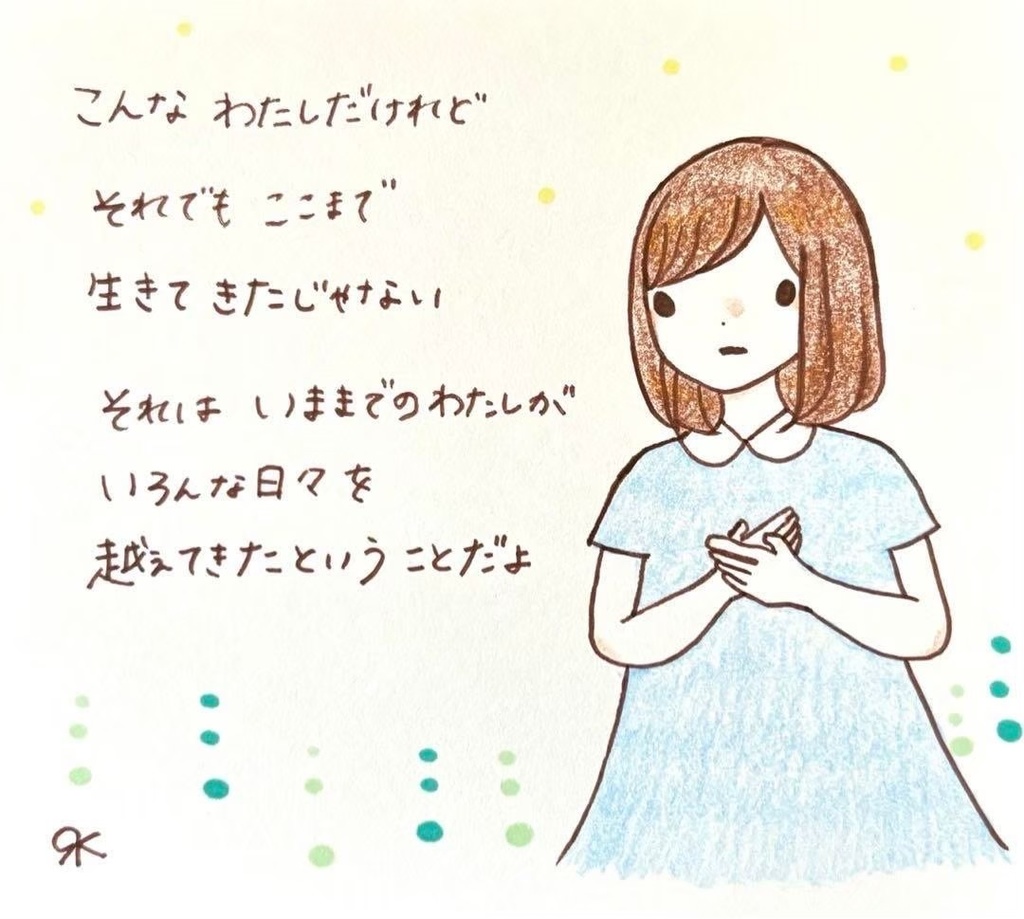 こんな わたしだけれど
それでも ここまで
生きて きたじゃない
それは いままでのわたしが
いろんな日々を
越えてきたという ことだよ